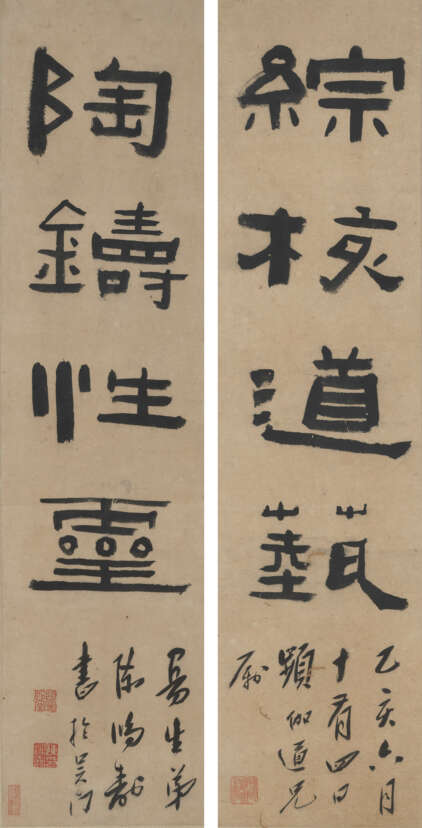 綜核道蓺
乙亥六月
十有四日
頻伽道兄
屬
陶鑄性靈
曼生弟
陳鴻壽
書於吳門